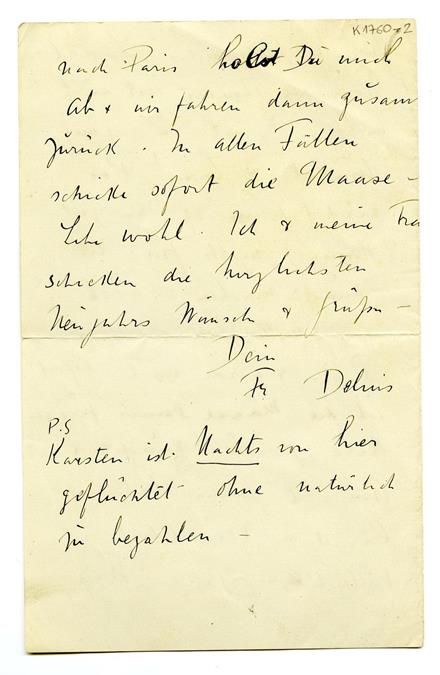 K1760-2
nach Paris holst Du mich
ab & wir fahren dann zusam
zurück. In allen Fällen
schicke sofort die Maasse –
Lebe wohl. Ich & meine Fra
schicken die herzlichsten
Neujahrs Wünsche & Grüße –
Dein
Fr Delius
P.S
Karsten ist Nachts von hier
geflüchtet ohne natürlich
zu bezahlen –